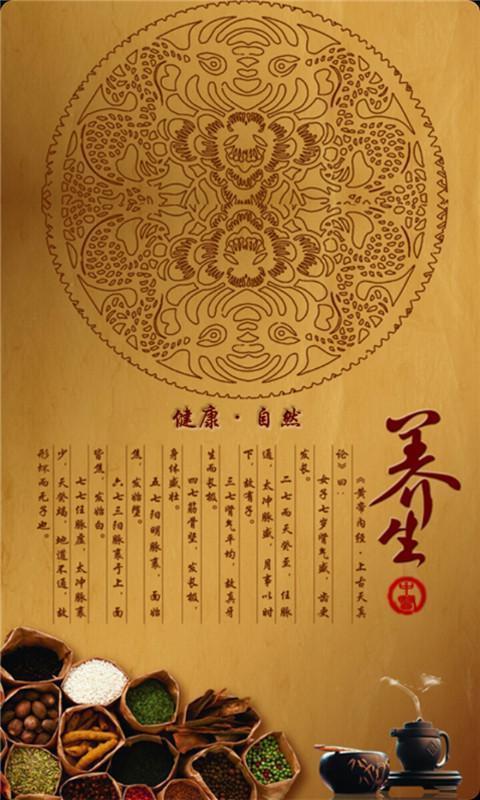 健康·自然
养生
《黄帝内经·上古天真
论》曰:
女子七岁肾气盛,齿更
发长。
二七而天癸至,任脉
通,太冲脉盛,月事以时
下,故有子。
三七肾气平均,故真牙
生而长极。
四七筋骨坚,发长极,
身体盛壮。
五七阳明脉衰,面始
焦,发始堕。
六七三阳脉衰于上,面
皆焦,发始白。
七七任脉虚,太冲脉衰
少,天癸竭,地道不通,故
形坏而无子也。